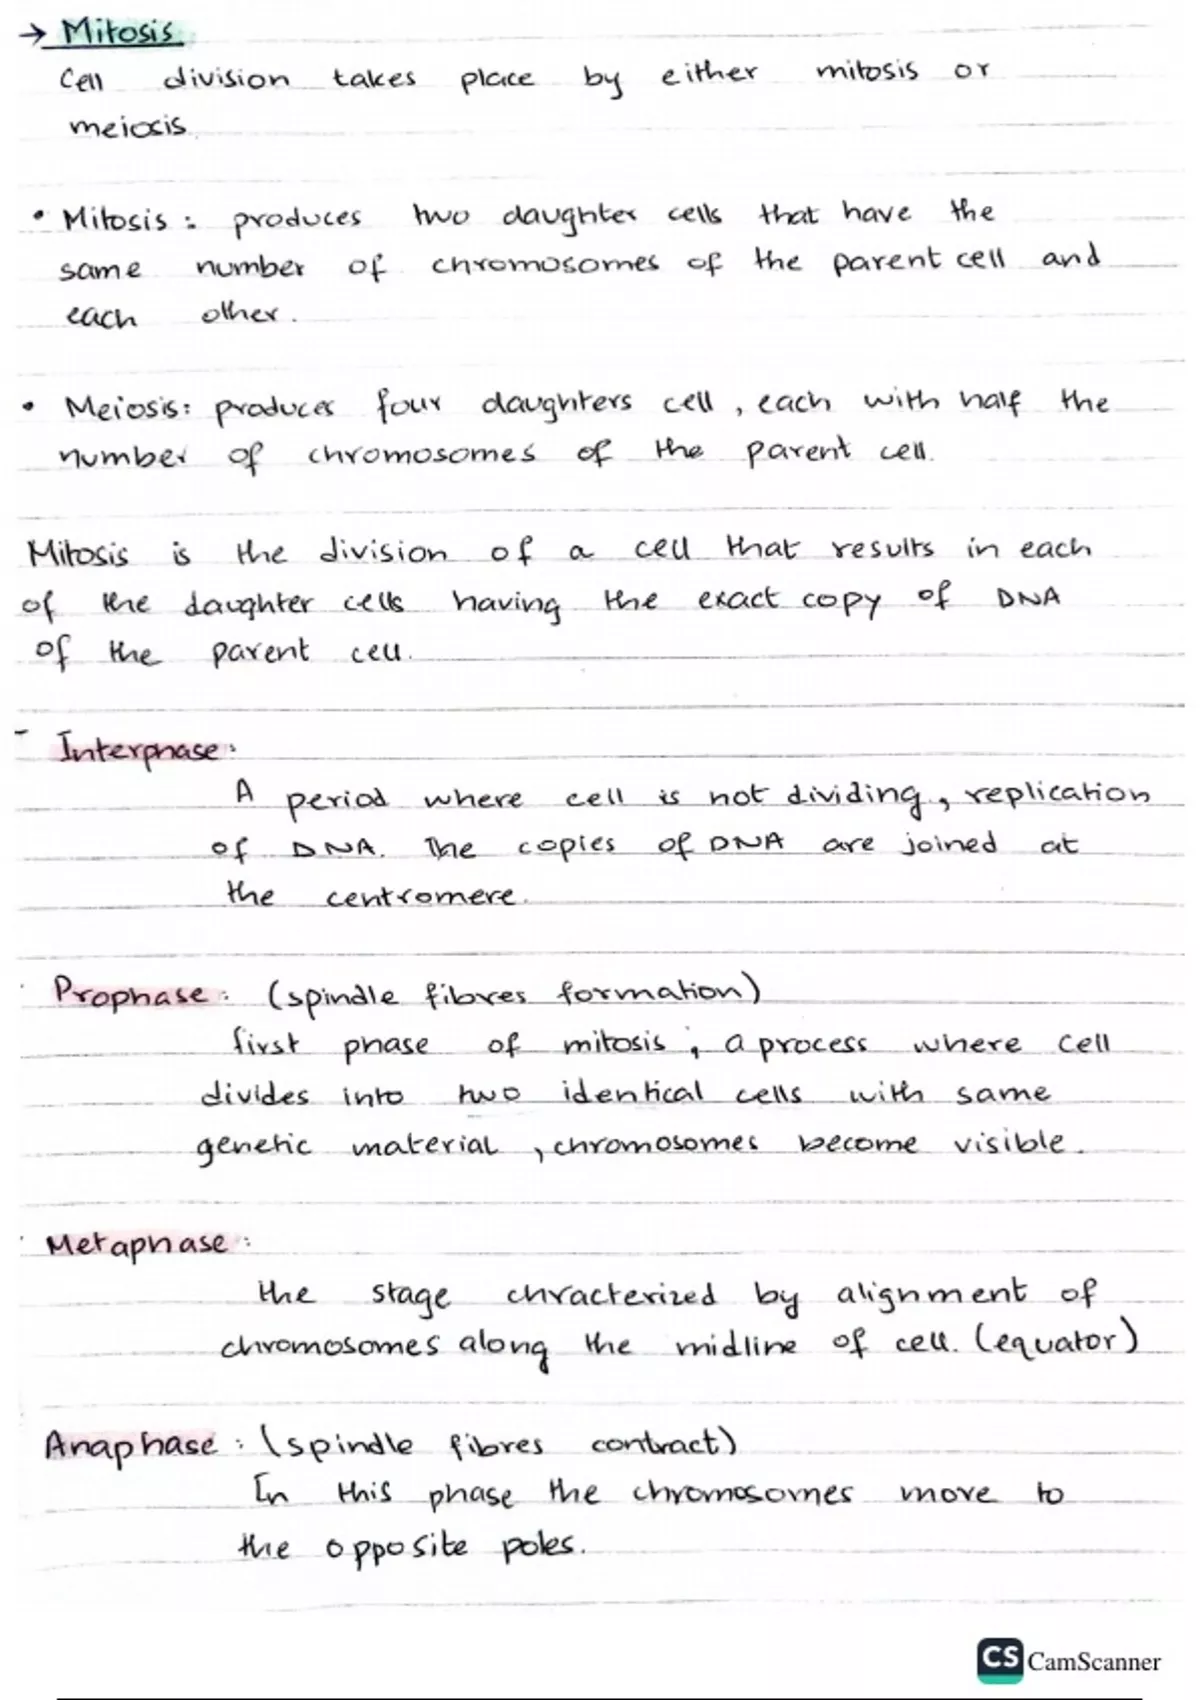 → Mitosis
Cell division takes place by either mitosis or
meiosis.
• Mitosis : produces two daughter cells that have the
same number of chromosomes of the parent cell and
each other.
• Meiosis: produces four daughters cell, each with half the
number of chromosomes of the parent cell.
Mitosis is the division of a cell that results in each
of the daughter cells having the exact copy of DNA
of the parent cell.
- Interphase:
A period where cell is not dividing, replication
of DNA. The copies of DNA are joined at
the centromere.
Prophase: (spindle fibres formation)
first phase of mitosis, a process where cell
divides into two identical cells with same
genetic material, chromosomes become visible.
Metaphase:
the stage chracterized by alignment of
chromosomes along the midline of cell. (equator)
Anaphase: (spindle fibres contract)
In this phase the chromosomes move to
the opposite poles.
CS CamScanner